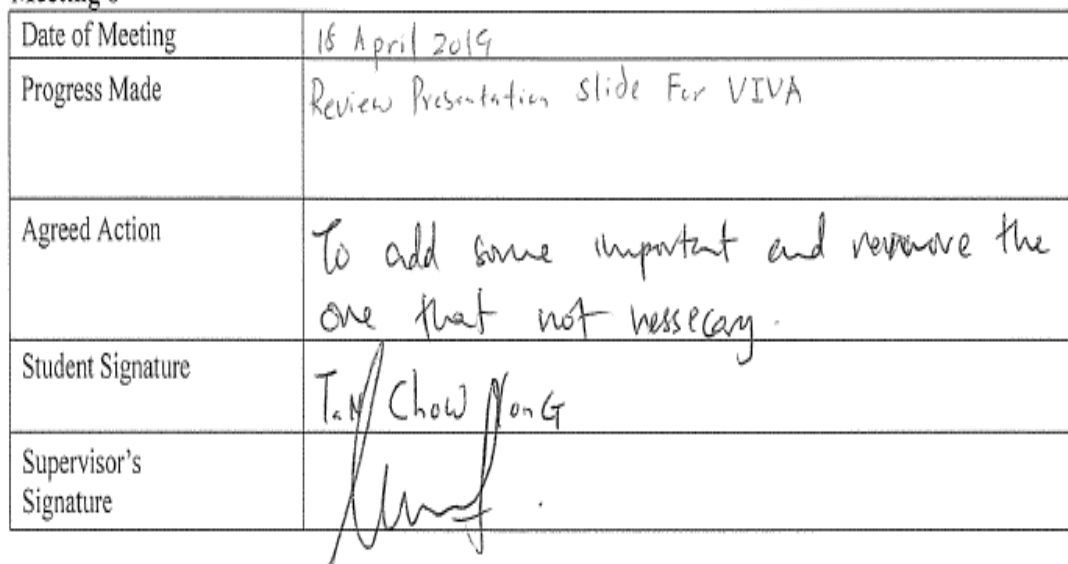 Date of Meeting
18 April 2019
Progress Made
Review Presentation Slide For VIVA
Agreed Action
To add some important and remove the
one that not nessecary.
Student Signature
TaN Chow
Supervisor's
Signature